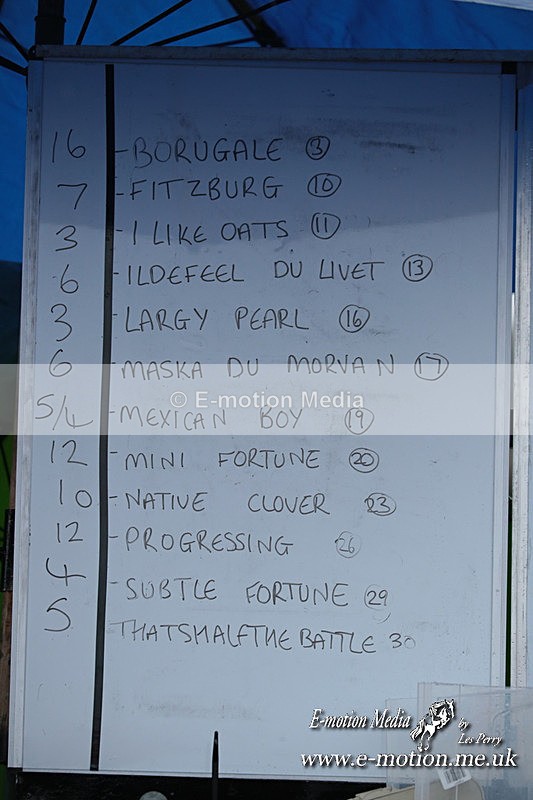 16 - BORUGALE ③
7 - FITZBURG ⑩
3 - I LIKE OATS ⑪
6 - ILDEFEEL DU LIVET ⑬
3 - LARGY PEARL ⑯
6 - MASKA DU MORVAN ⑰
© E-motion Media
5/4 - MEXICAN BOY ⑲
12 - MINI FORTUNE ⑳
10 - NATIVE CLOVER ㉓
12 - PROGRESSING ㉖
4 - SUBTLE FORTUNE ㉙
5 THATSHALFTHEBATTLE 30
E-motion Media by Les Perry
www.e-motion.me.uk